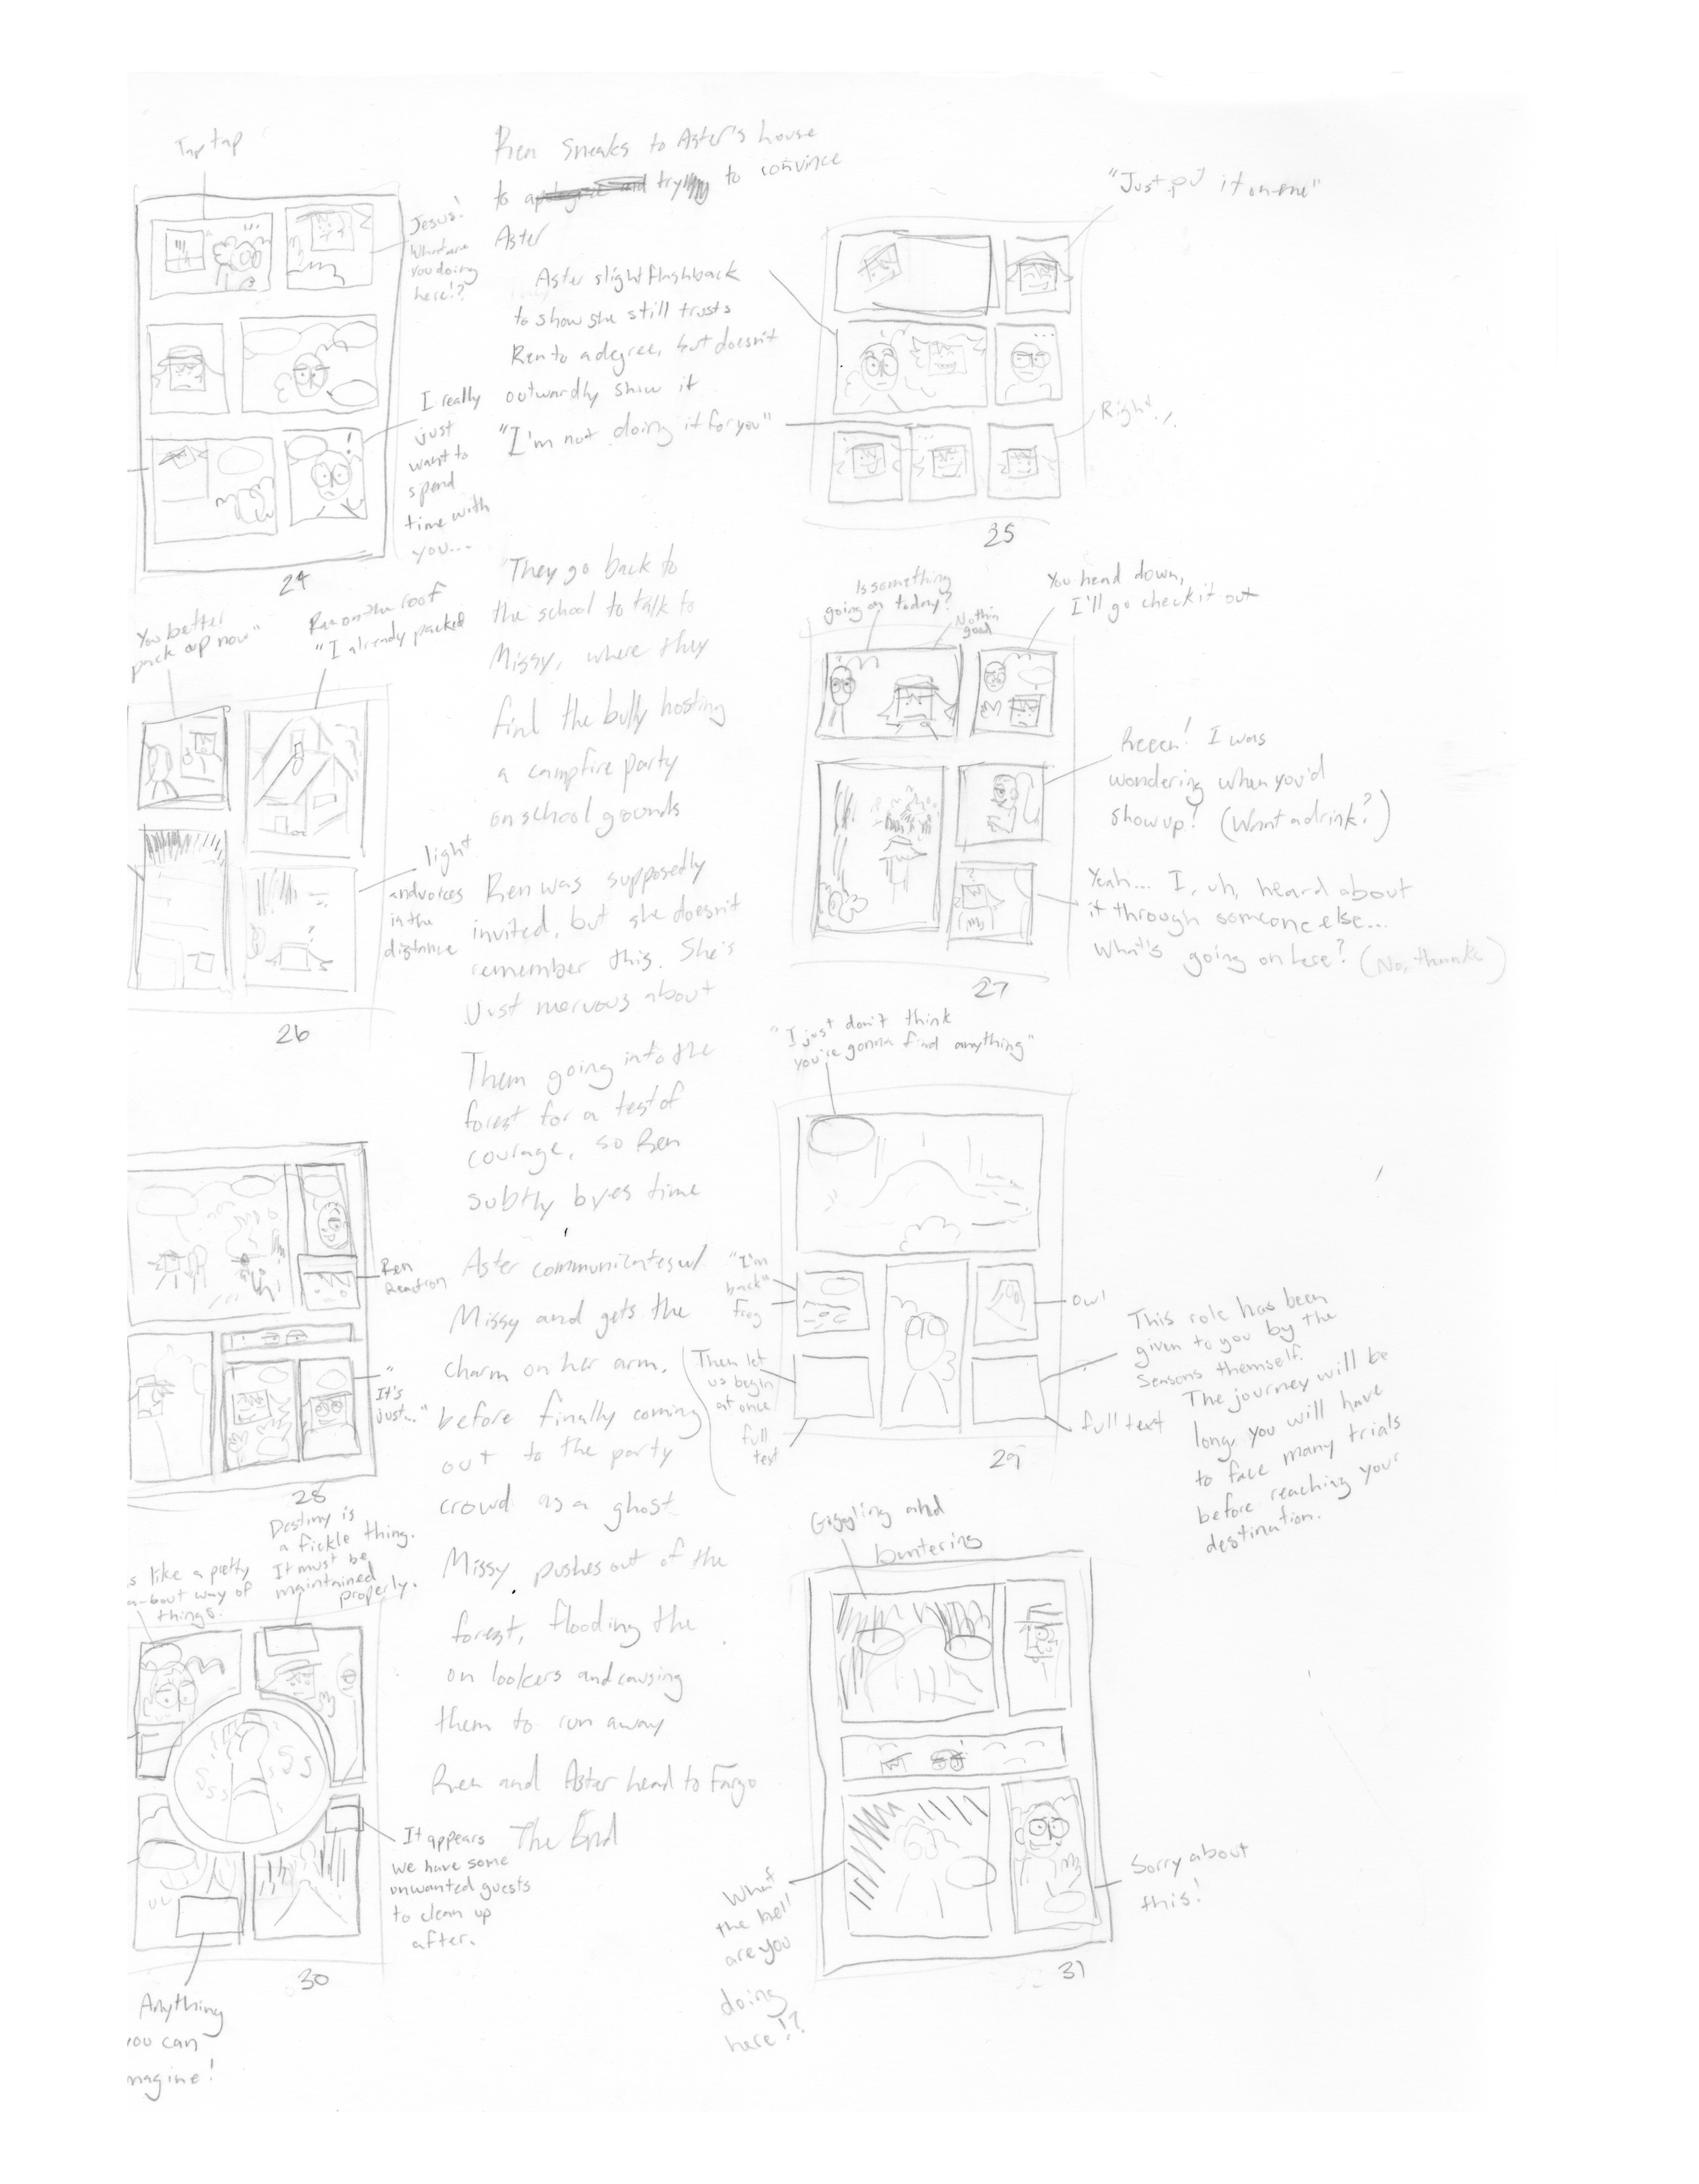 Tap tap
Jesus!
What are
you doing
here!?
I really
just
want to
spend
time with
you...
24
Ren sneaks to Aster's house
to try to convince
Aster
Aster slight flashback
to show she still trusts
Ren to a degree, but doesn't
outwardly show it
"I'm not doing it for you"
"Just it on me"
Right!
25
You better
pack up now"
Ren on the roof
"I already packed
light
and voices
in the
distance
26
They go back to
the school to talk to
Missy, where they
find the bully hosting
a campfire party
on school grounds
Ren was supposedly
invited, but she doesn't
remember this. She's
Just nervous about
Them going into the
forest for a test of
courage, so Ren
subtly byes time
Is something
going on today?
Nothin
good
You head down,
I'll go check it out
Reeen! I was
wondering when you'd
show up! (Want a drink?)
Yeah... I, uh, heard about
it through someone else...
What's going on here? (No, thanks)
27
Ren
Reaction
"It's
just..."
28
Aster communicates w/
Missy and gets the
charm on her arm.
before finally coming
out to the party
crowd as a ghost
Missy pushes out of the
forest, flooding the
on lookers and causing
them to run away
Ren and Aster head to Fargo
The End
"I just don't think
you're gonna find anything"
"I'm
back"
Frog
Owl
Then let
us begin
at once
full
text
This role has been
given to you by the
Seasons themself.
The journey will be
long, you will have
to face many trials
before reaching your
destination.
full text
29
s like a pretty
a-bout way of
things.
Destiny is
a fickle thing.
It must be
maintained
properly.
It appears
we have some
unwanted guests
to clean up
after.
30
Anything
you can
magine!
Giggling and
bantering
What
the hell
are you
doing
here!?
Sorry about
this!
31